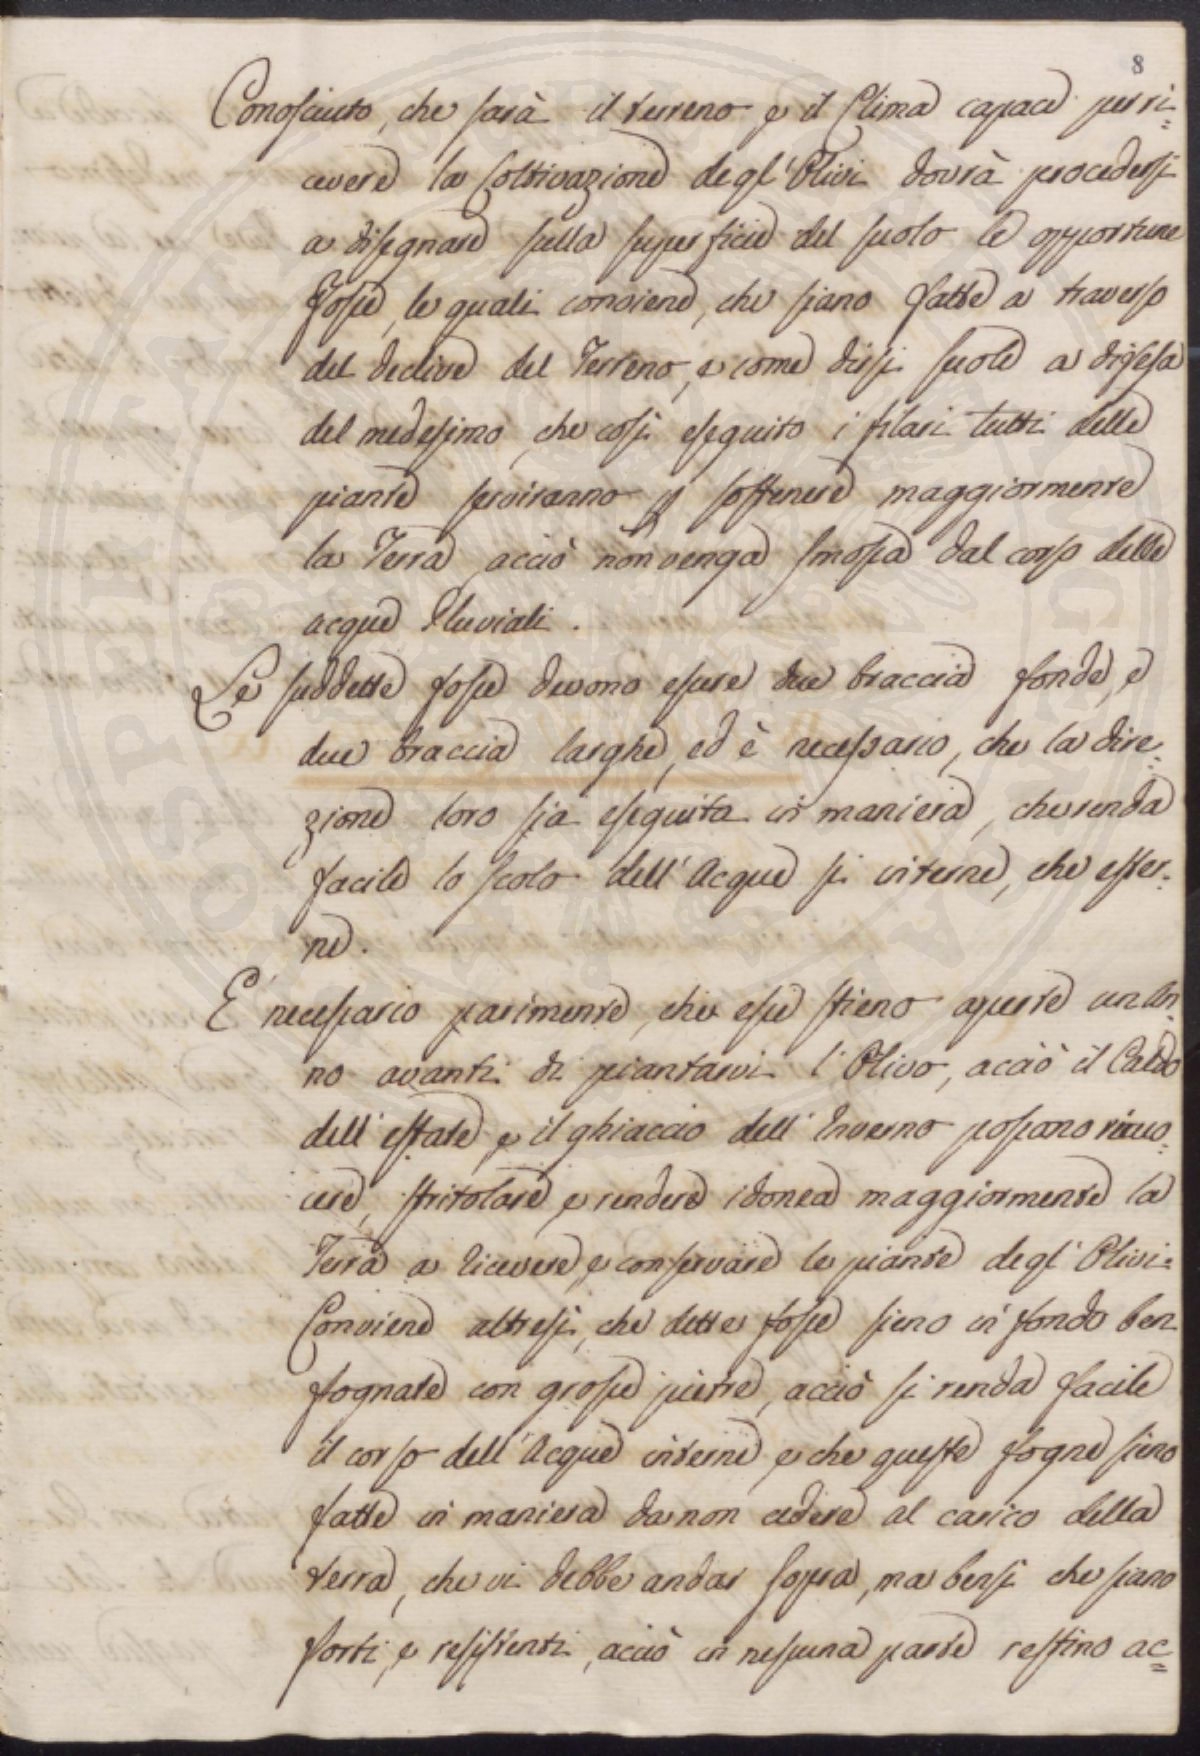 8
Conosciuto, che sarà il terreno e il Clima capace per ri=
cevere la Coltivazione degl'Olivi dovrà procedersi
a disegnare sulla superficie del suolo le opportune
Fosse, le quali conviene, che siano fatte a traverso
del declive del Terreno, e come dirsi suole a difesa
del medesimo, che così eseguito i filari tutti delle
piante serviranno p sostenere maggiormente
la Terra acciò non venga smossa dal corso delle
acque Pluviali.
Le suddette fosse devono essere due braccia fonde, e
due braccia larghe, ed è necessario, che la dire=
zione loro sia eseguita in maniera, che renda
facile lo scolo dell'Acque sì interne, che ester=
ne.
E' necessario parimente, che esse stieno aperte un An=
no avanti di piantarvi l'Olivo, acciò il Caldo
dell'estate, e il ghiaccio dell'Inverno possano ricuo=
cere, stritolare, e rendere idonea maggiormente la
Terra a ricevere, e conservare le piante degl'Olivi=
Conviene altresì, che dette fosse sieno in fondo ben
fognate con grosse pietre, acciò si renda facile
il corso dell'Acque interne, e che queste fogne sieno
fatte in maniera da non cedere al carico della
terra, che vi debbe andar sopra, ma bensì che siano
forti, e resistenti, acciò in nessuna parte restino ac=